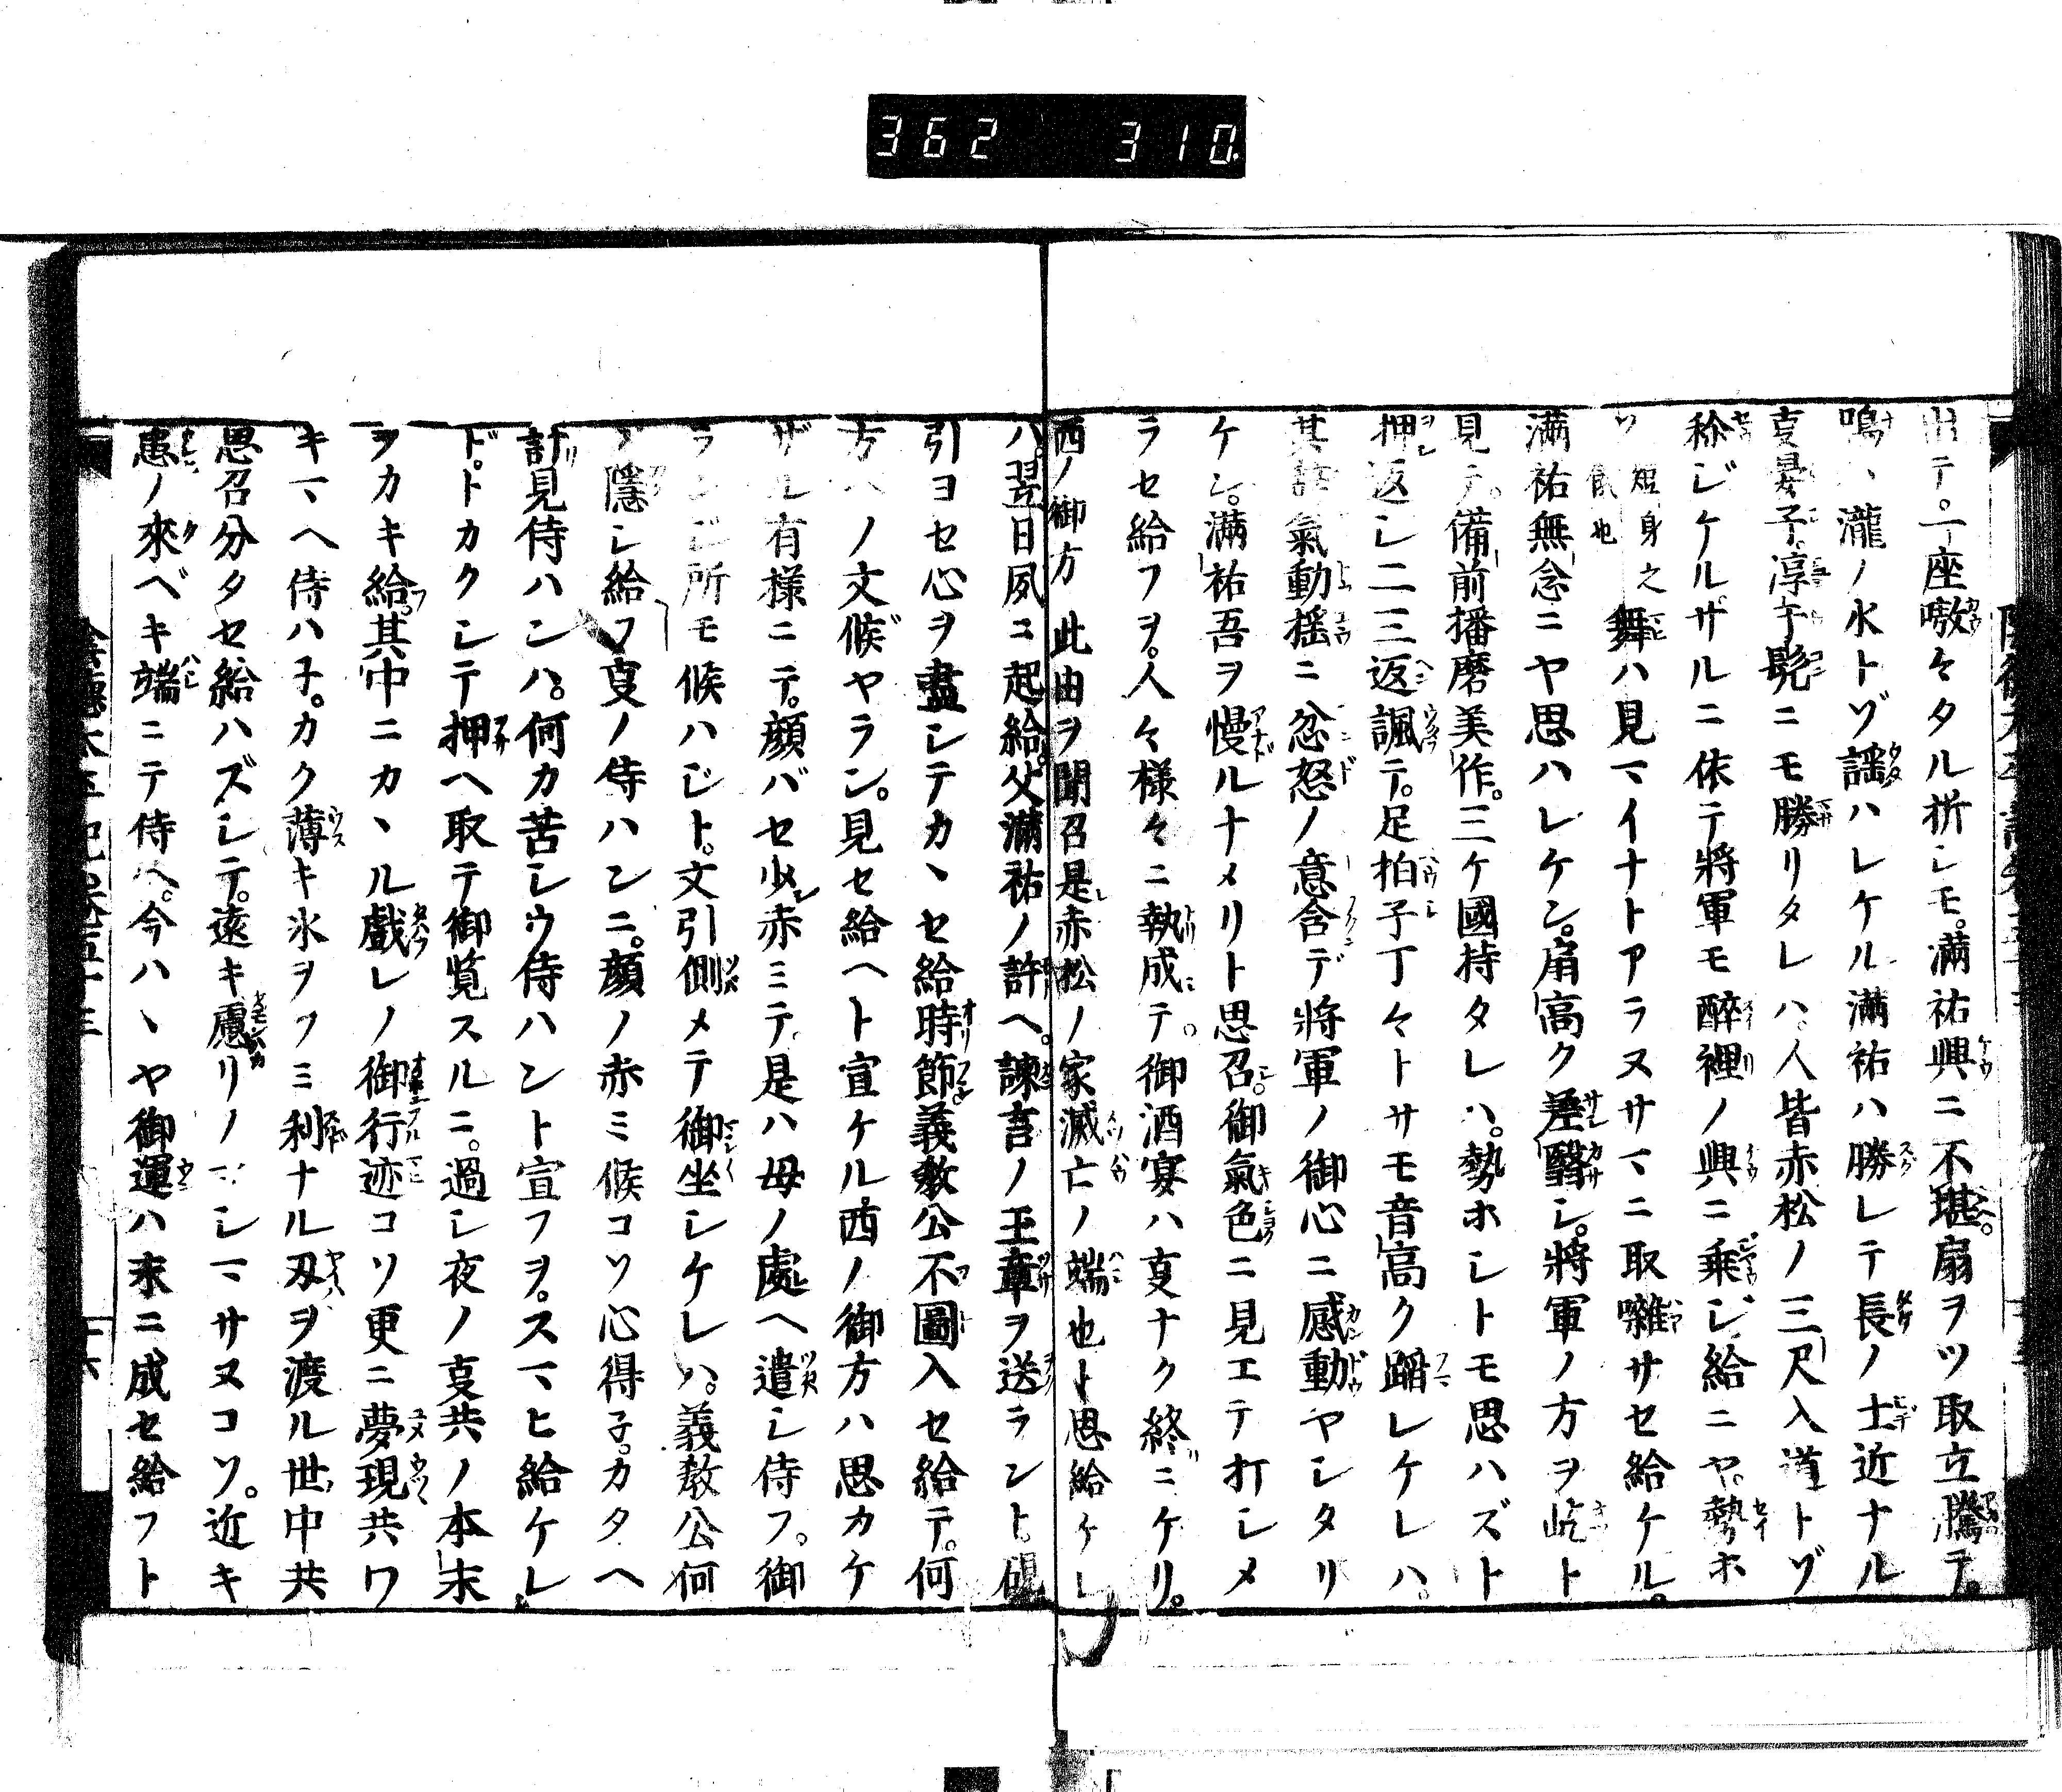 362 310
出テ。一座嗷々タル折シモ。満祐興ニ不堪。扇ヲツ取立騰テ。
鳴ハ瀧ノ水トゾ謡ハレケル満祐ハ勝レテ長ノ士近ナル
夏晏子淳于髡ニモ勝リタレハ。人皆赤松ノ三尺入道トゾ
称ジケル。サルニ依テ将軍モ醉裡ノ興ニ乗ジ給ニヤ。勢ホ
短身之 也 舞ハ見マイナトアラヌサマニ取囃サセ給ケル。
満祐無念ニヤ思ハレケン。肩高ク差翳シ。將軍ノ方ヲ屹ト
見テ。備前播磨美作。三ケ國持タレハ。勢ホシトモ思ハズト
押返シ二三返諷テ。足拍子丁々トサモ音高ク蹈レケレハ。
其 氣動揺ニ忿怒ノ意含デ將軍ノ御心ニ感動ヤシタリ
ケン。満祐吾ヲ慢ルナメリト思召。御氣色ニ見エテ打シメ
ラセ給フヲ。人々様々ニ執成テ。御酒宴ハ夏ナク終ニケリ。
西ノ御方此由ヲ聞召是赤松ノ家滅亡ノ端也ト思給ケレ
ハ。翌日夙コ起給。父満祐ノ許ヘ。諫言ノ玉章ヲ送ラント。硯
引ヨセ心ヲ盡シテカヽセ給時節義教公不圖入セ給テ。何
方ヘノ文候ヤラン。見セ給ヘト宣ケル。西ノ御方ハ思カケ
ザル有様ニテ。顔バセ少赤ミテ是ハ母ノ處ヘ遣シ侍フ。御
ランジ所モ候ハジト。文引側メテ御坐シケレハ。義教公何
ヲ隱シ給フ夏ノ侍ハンニ。顔ノ赤ミ候コソ心得子。カタヘ
計見侍ハンハ。何カ苦シウ侍ハント宣フヲ。スマヒ給ケレ
ド。トカクシテ押ヘ取テ御覧スルニ。過シ夜ノ夏共ノ本末
ヲカキ給。其中ニカヽル戲レノ御行迹コソ更ニ夢現共ワ
キマヘ侍ハ子。カク薄キ氷ヲフミ利ナル刄ヲ渡ル世中共
思召分タセ給ハズシテ。遠キ慮リノマシマサヌコソ。近キ
患ノ來ベキ端ニテ侍ヘ。今ハヽヤ御運ハ末ニ成セ給フト